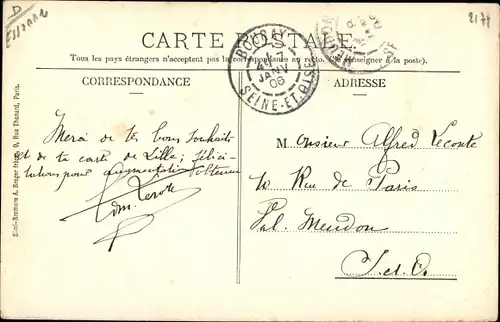 D
Essonne
2171
CARTE POSTALE
Tous les pays étrangers n'acceptent pas la correspondance au recto. (Se renseigner à la poste).
CORRESPONDANCE
ADRESSE
JANV
06
SEINE-ET-OISE
Merci de tes bons souhaits
et de ta carte de Lille; félici-
tations pour augmentation obtenue
Monsieur Alfred Leconte
Rue de Paris
Val. Meudon
S. et O.
Simi-Bromure A. Breger frères, 9, Rue Thénard, Paris.